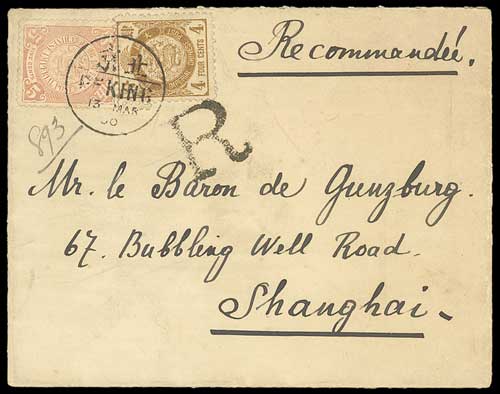 Recommandée.
4 FOUR CENTS 4
京北
PEKING
13 MAR
R
893
Mr. le Baron de Gunzburg.
67. Bubbling Well Road.
Shanghai.